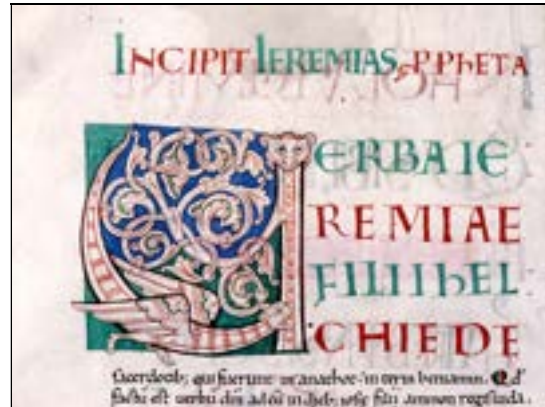 INCIPIT IEREMIAS PPhETA
VERBA IE
REMIAE
FILII hEL
CHIE DE
sacerdotib; qui fuerunt in anathot in terra beniamin. Qd
factū est uerbū dn̄i ad eū in dieb; iosie filii ammon regis iuda.